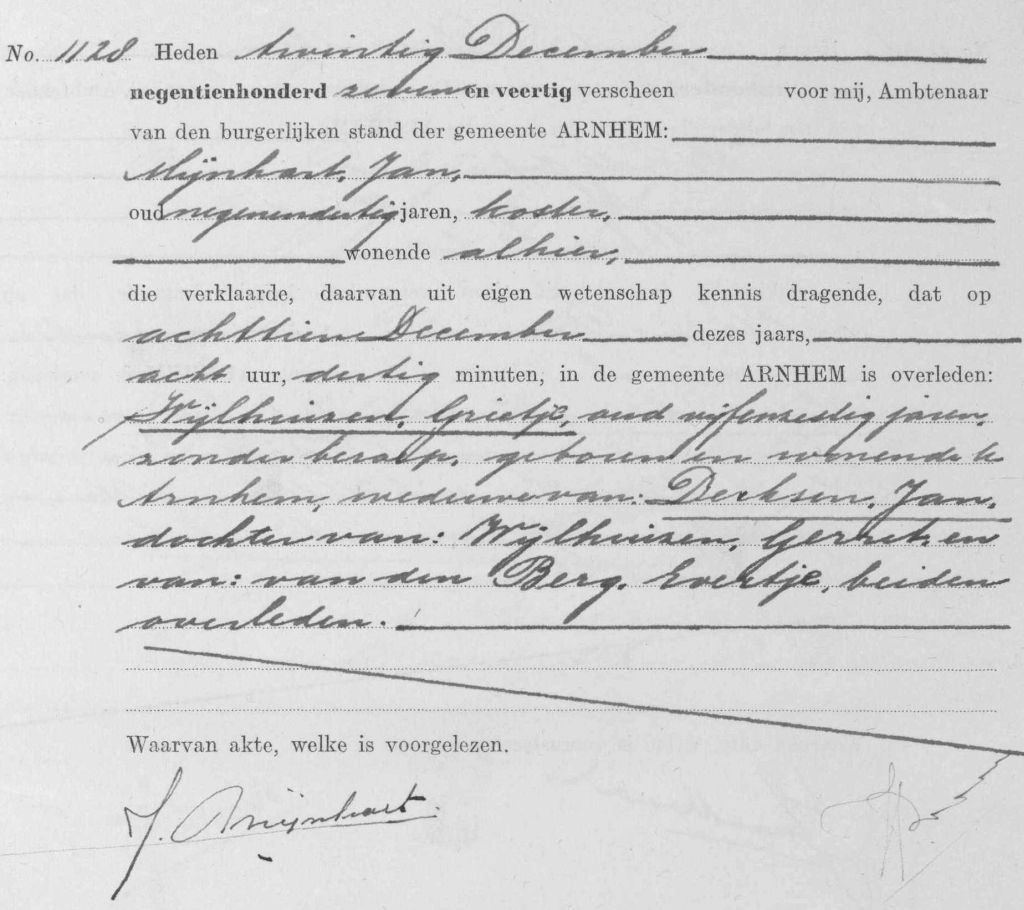 No. 1128 Heden twintig December
negentienhonderd zeven en veertig verscheen voor mij, Ambtenaar
van den burgerlijken stand der gemeente ARNHEM:
Mijnhart, Jan,
oud negenendertig jaren, koster,
wonende alhier,
die verklaarde, daarvan uit eigen wetenschap kennis dragende, dat op
achttien December dezes jaars,
acht uur, dertig minuten, in de gemeente ARNHEM is overleden:
Wijlhuizen, Grietje, oud vijfenzestig jaren,
zonder beroep, geboren en wonende te
Arnhem, weduwe van: Derksen, Jan,
dochter van: Wijlhuizen, Gerrit, en
van: van den Berg, Evertje, beiden
overleden.
Waarvan akte, welke is voorgelezen.
J. Mijnhart